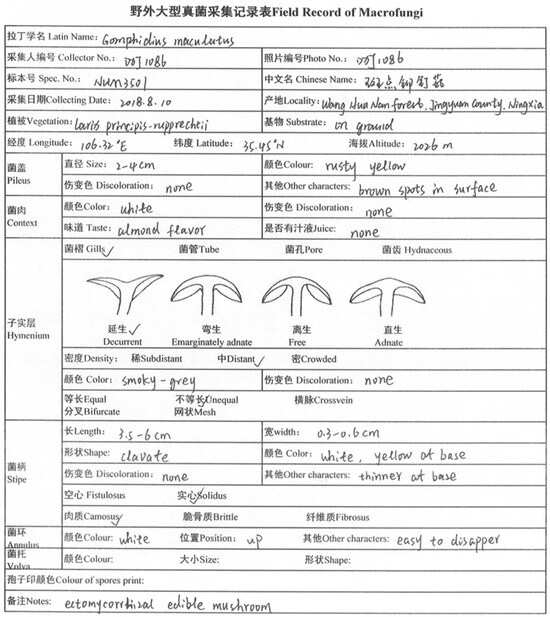 野外大型真菌采集记录表Field Record of Macrofungi
拉丁学名 Latin Name: Gomphidius maculutus
采集人编号 Collector No.: DDJ1086 照片编号Photo No.: DDJ1086
标本号 Spec. No.: NUM3501 中文名 Chinese Name: 斑点铆钉菇
采集日期Collecting Date: 2018.8.10 产地Locality: Wang Hua Nan forest, Jingyuan County, Ningxia
植被Vegetation: Laris principis-rupprechtii 基物 Substrate: on ground
经度 Longitude: 106.32°E 纬度 Latitude: 35.45°N 海拔Altitude: 2026 m
菌盖 Pileus 直径 Size: 2-4cm 颜色Colour: rusty yellow
伤变色 Discoloration: none 其他Other characters: brown spots in surface
菌肉 Context 颜色Color: white 伤变色 Discoloration: none
味道 Taste: almond flavor 是否有汁液Juice: none
子实层 Hymenium 菌褶 Gills✓ 菌管Tube 菌孔Pore 菌齿 Hydnaceous
延生✓ 弯生 离生 直生
Decurrent Emarginately adnate Free Adnate
密度Density: 稀Subdistant 中Distant✓ 密Crowded
颜色 Color: smoky-grey 伤变色 Discoloration: none
等长Equal 不等长Unequal 横脉Crossvein
分叉Bifurcate 网状Mesh
菌柄 Stipe 长Length: 3.5-6cm 宽width: 0.3-0.6cm
形状Shape: clavate 颜色 Color: white, yellow at base
伤变色 Discoloration: none 其他Other characters: thinner at base
空心 Fistulosus 实心Solidus
肉质Camosus✓ 脆骨质Brittle 纤维质Fibrosus
菌环 Annulus 颜色Colour: white 位置Position: up 其他Other characters: easy to disapper
菌托 Volva 颜色Colour: 大小Size: 形状Shape:
孢子印颜色Colour of spores print:
备注Notes: ectomycorrhizal edible mushroom